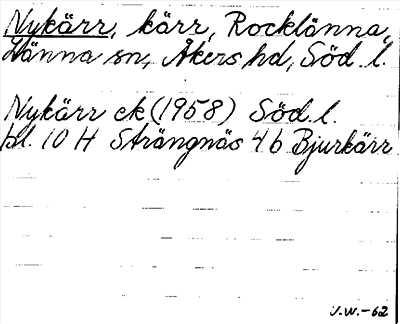 Nykärr, kärr, Rocklänna,
Länna sn, Åkers hd, Söd. l.
Nykärr ek (1958) Söd. l.
bl. 10 H Strängnäs 4 b Bjurkärr
V.W.-62